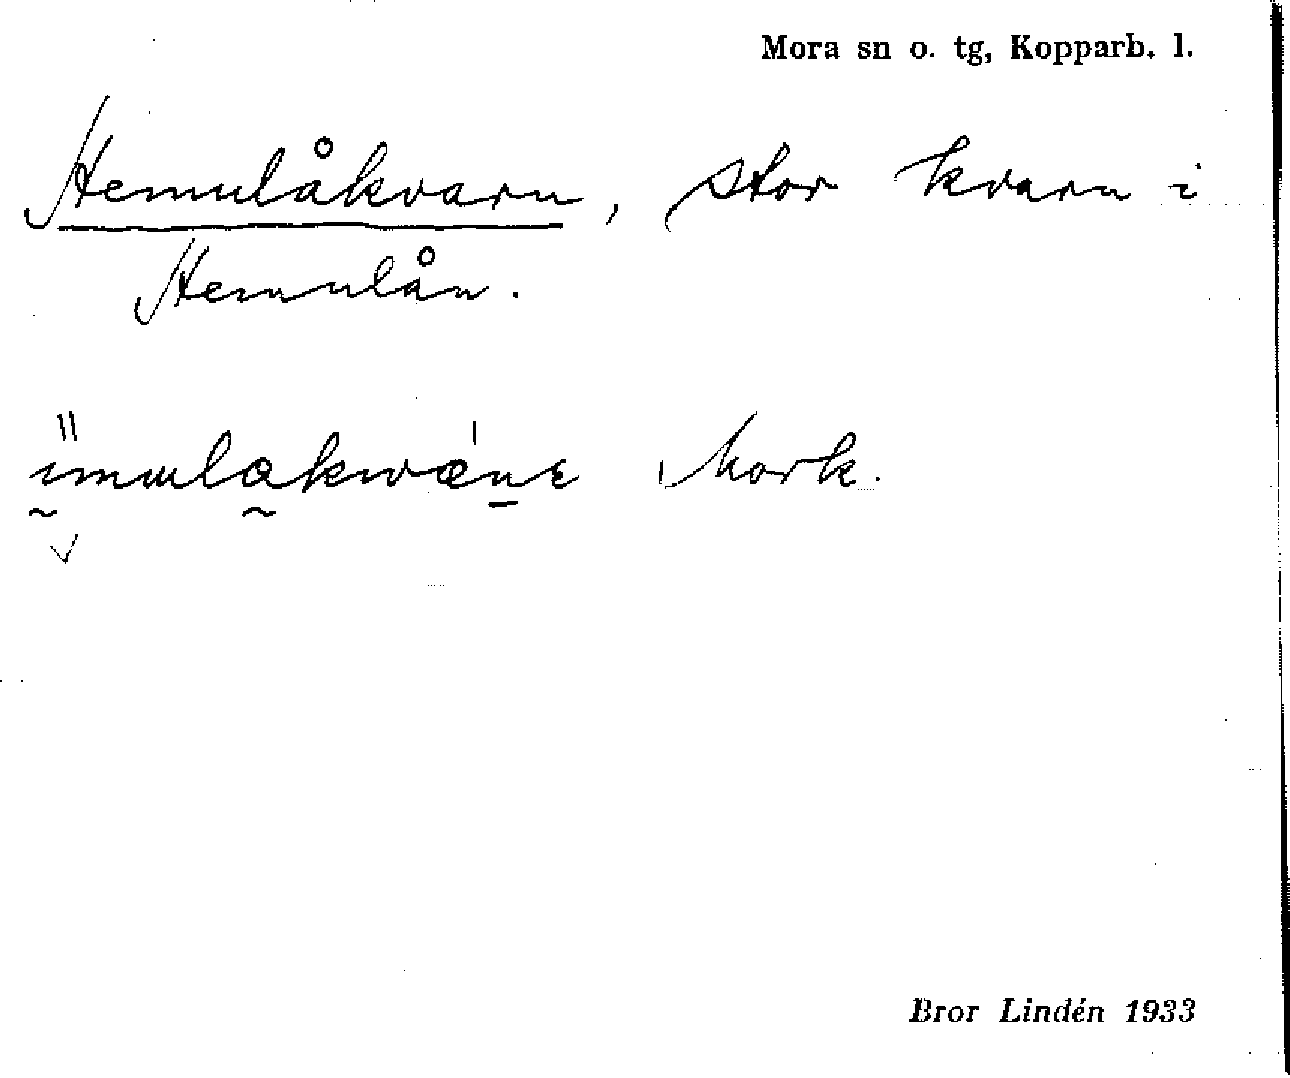 Mora sn o. tg, Kopparb. l.
Hemulåkvarn, stor kvarn i
Hemulån.
Mork.
Bror Lindén 1933